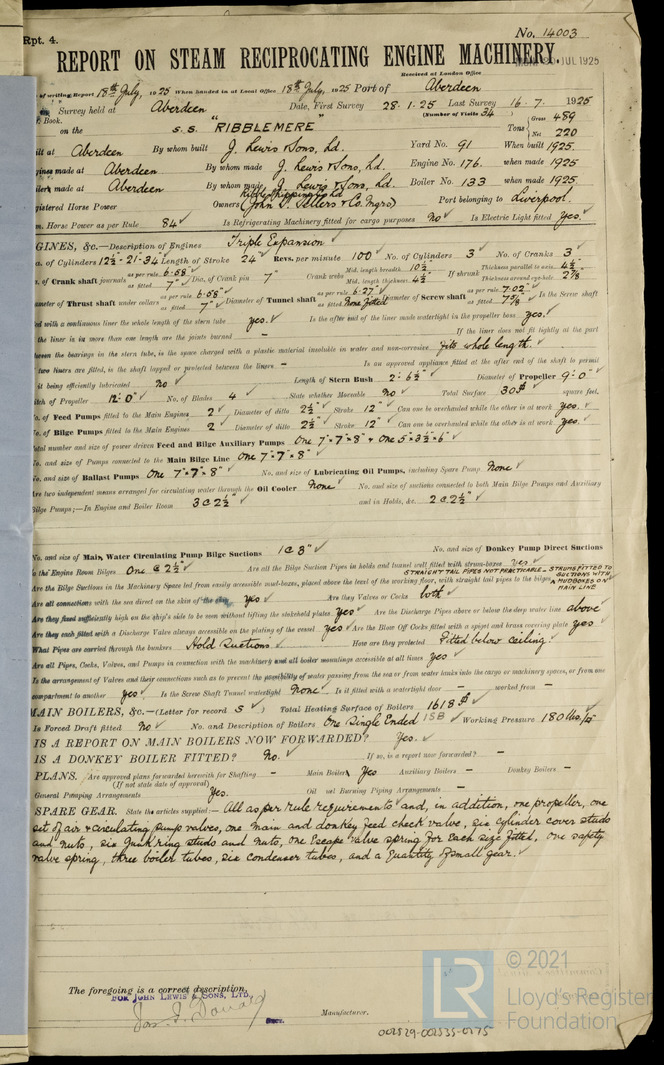 Rpt. 4.
No. 14003
REPORT ON STEAM RECIPROCATING ENGINE MACHINERY.
Received at London Office
JUL 1925
of writing Report 18th July, 1925 When handed in at Local Office 18th July, 1925 Port of Aberdeen
Survey held at Aberdeen Date, First Survey 28.1.25 Last Survey 16.7. 1925
Book. (Number of Visits 34)
on the S.S. "RIBBLEMERE" Tons Gross 489 Net 220
ilt at Aberdeen By whom built J. Lewis & Sons, Ld. Yard No. 91 When built 1925
gines made at Aberdeen By whom made J. Lewis & Sons, Ld. Engine No. 176 when made 1925
oilers made at Aberdeen By whom made J. Lewis & Sons, Ld. Boiler No. 133 when made 1925
gistered Horse Power Owners Ribble Shipping Co Ld (John S. Sellers & Co. Mgrs) Port belonging to Liverpool
m. Horse Power as per Rule 84 Is Refrigerating Machinery fitted for cargo purposes No Is Electric Light fitted Yes.
GINES, &c.—Description of Engines Triple Expansion
a. of Cylinders 12½-21-34 Length of Stroke 24 Revs. per minute 100 No. of Cylinders 3 No. of Cranks 3
of Crank shaft journals as per rule 6.58" as fitted 7" Dia. of Crank pin 7" Crank webs Mid. length breadth 10½" Mid. length thickness 4½" If shrunk Thickness parallel to axis 4½" Thickness around eye-hole 2⅞"
ameter of Thrust shaft under collars as per rule 6.58" as fitted 7" Diameter of Tunnel shaft as per rule 6.27" as fitted None fitted Diameter of Screw shaft as per rule 7.02" as fitted 7⅝" Is the Screw shaft
ed with a continuous liner the whole length of the stern tube yes. Is the after end of the liner made watertight in the propeller boss yes.
the liner is in more than one length are the joints burned — If the liner does not fit tightly at the part
ween the bearings in the stern tube, is the space charged with a plastic material insoluble in water and non-corrosive fits whole length.
two liners are fitted, is the shaft lapped or protected between the liners — Is an approved appliance fitted at the after end of the shaft to permit
it being efficiently lubricated no Length of Stern Bush 2'-6½" Diameter of Propeller 9'-0"
itch of Propeller 12'-0" No. of Blades 4 State whether Moveable No Total Surface 30 square feet.
o. of Feed Pumps fitted to the Main Engines 2 Diameter of ditto 2½" Stroke 12" Can one be overhauled while the other is at work yes.
o. of Bilge Pumps fitted to the Main Engines 2 Diameter of ditto 2½" Stroke 12" Can one be overhauled while the other is at work yes.
otal number and size of power driven Feed and Bilge Auxiliary Pumps One 7"×7"×8" & One 5"×3½"×6"
o. and size of Pumps connected to the Main Bilge Line One 7"×7"×8"
o. and size of Ballast Pumps One 7"×7"×8" No. and size of Lubricating Oil Pumps, including Spare Pump None
re two independent means arranged for circulating water through the Oil Cooler None No. and size of suctions connected to both Main Bilge Pumps and Auxiliary
Bilge Pumps;—In Engine and Boiler Room 3 @ 2½" and in Holds, &c. 2 @ 2½"
No. and size of Main Water Circulating Pump Bilge Suctions 1 @ 3" No. and size of Donkey Pump Direct Suctions
to the Engine Room Bilges One @ 2½" Are all the Bilge Suction Pipes in holds and tunnel well fitted with strum-boxes yes
STRAIGHT TAIL PIPES NOT PRACTICABLE - STRUMS FITTED TO SUCTIONS WITH MUDBOXES ON MAIN LINE
Are the Bilge Suctions in the Machinery Space led from easily accessible mud-boxes, placed above the level of the working floor, with straight tail pipes to the bilges
Are all connections with the sea direct on the skin of the ship yes Are they Valves or Cocks both
Are they fixed sufficiently high on the ship's side to be seen without lifting the stokehold plates yes Are the Discharge Pipes above or below the deep water line above
Are they each fitted with a Discharge Valve always accessible on the plating of the vessel yes Are the Blow Off Cocks fitted with a spigot and brass covering plate yes
What Pipes are carried through the bunkers Hold Suctions How are they protected Fitted below ceiling.
Are all Pipes, Cocks, Valves, and Pumps in connection with the machinery and all boiler mountings accessible at all times yes
Is the arrangement of Valves and their connections such as to prevent the possibility of water passing from the sea or from water tanks into the cargo or machinery spaces, or from one
compartment to another yes Is the Screw Shaft Tunnel watertight None Is it fitted with a watertight door — worked from —
MAIN BOILERS, &c.—(Letter for record S) Total Heating Surface of Boilers 1618
Is Forced Draft fitted No No. and Description of Boilers One Single Ended 1SB Working Pressure 180 lbs.
IS A REPORT ON MAIN BOILERS NOW FORWARDED? Yes.
IS A DONKEY BOILER FITTED? No. If so, is a report now forwarded? —
PLANS. Are approved plans forwarded herewith for Shafting — Main Boilers Yes Auxiliary Boilers — Donkey Boilers —
(If not state date of approval)
General Pumping Arrangements Yes. Oil uel Burning Piping Arrangements —
SPARE GEAR. State the articles supplied:— All as per rule requirements and, in addition, one propeller, one
set of air & circulating pump valves, one main and donkey feed check valve, six cylinder cover studs
and nuts, six junk ring studs and nuts, one Escape valve spring for each size fitted, one safety
valve spring, three boiler tubes, six condenser tubes, and a Quantity of small gear.
The foregoing is a correct description,
FOR JOHN LEWIS & SONS, LTD.
Manufacturer.
002529-002535-0175
LR
© 2021
Lloyd's Register
Foundation